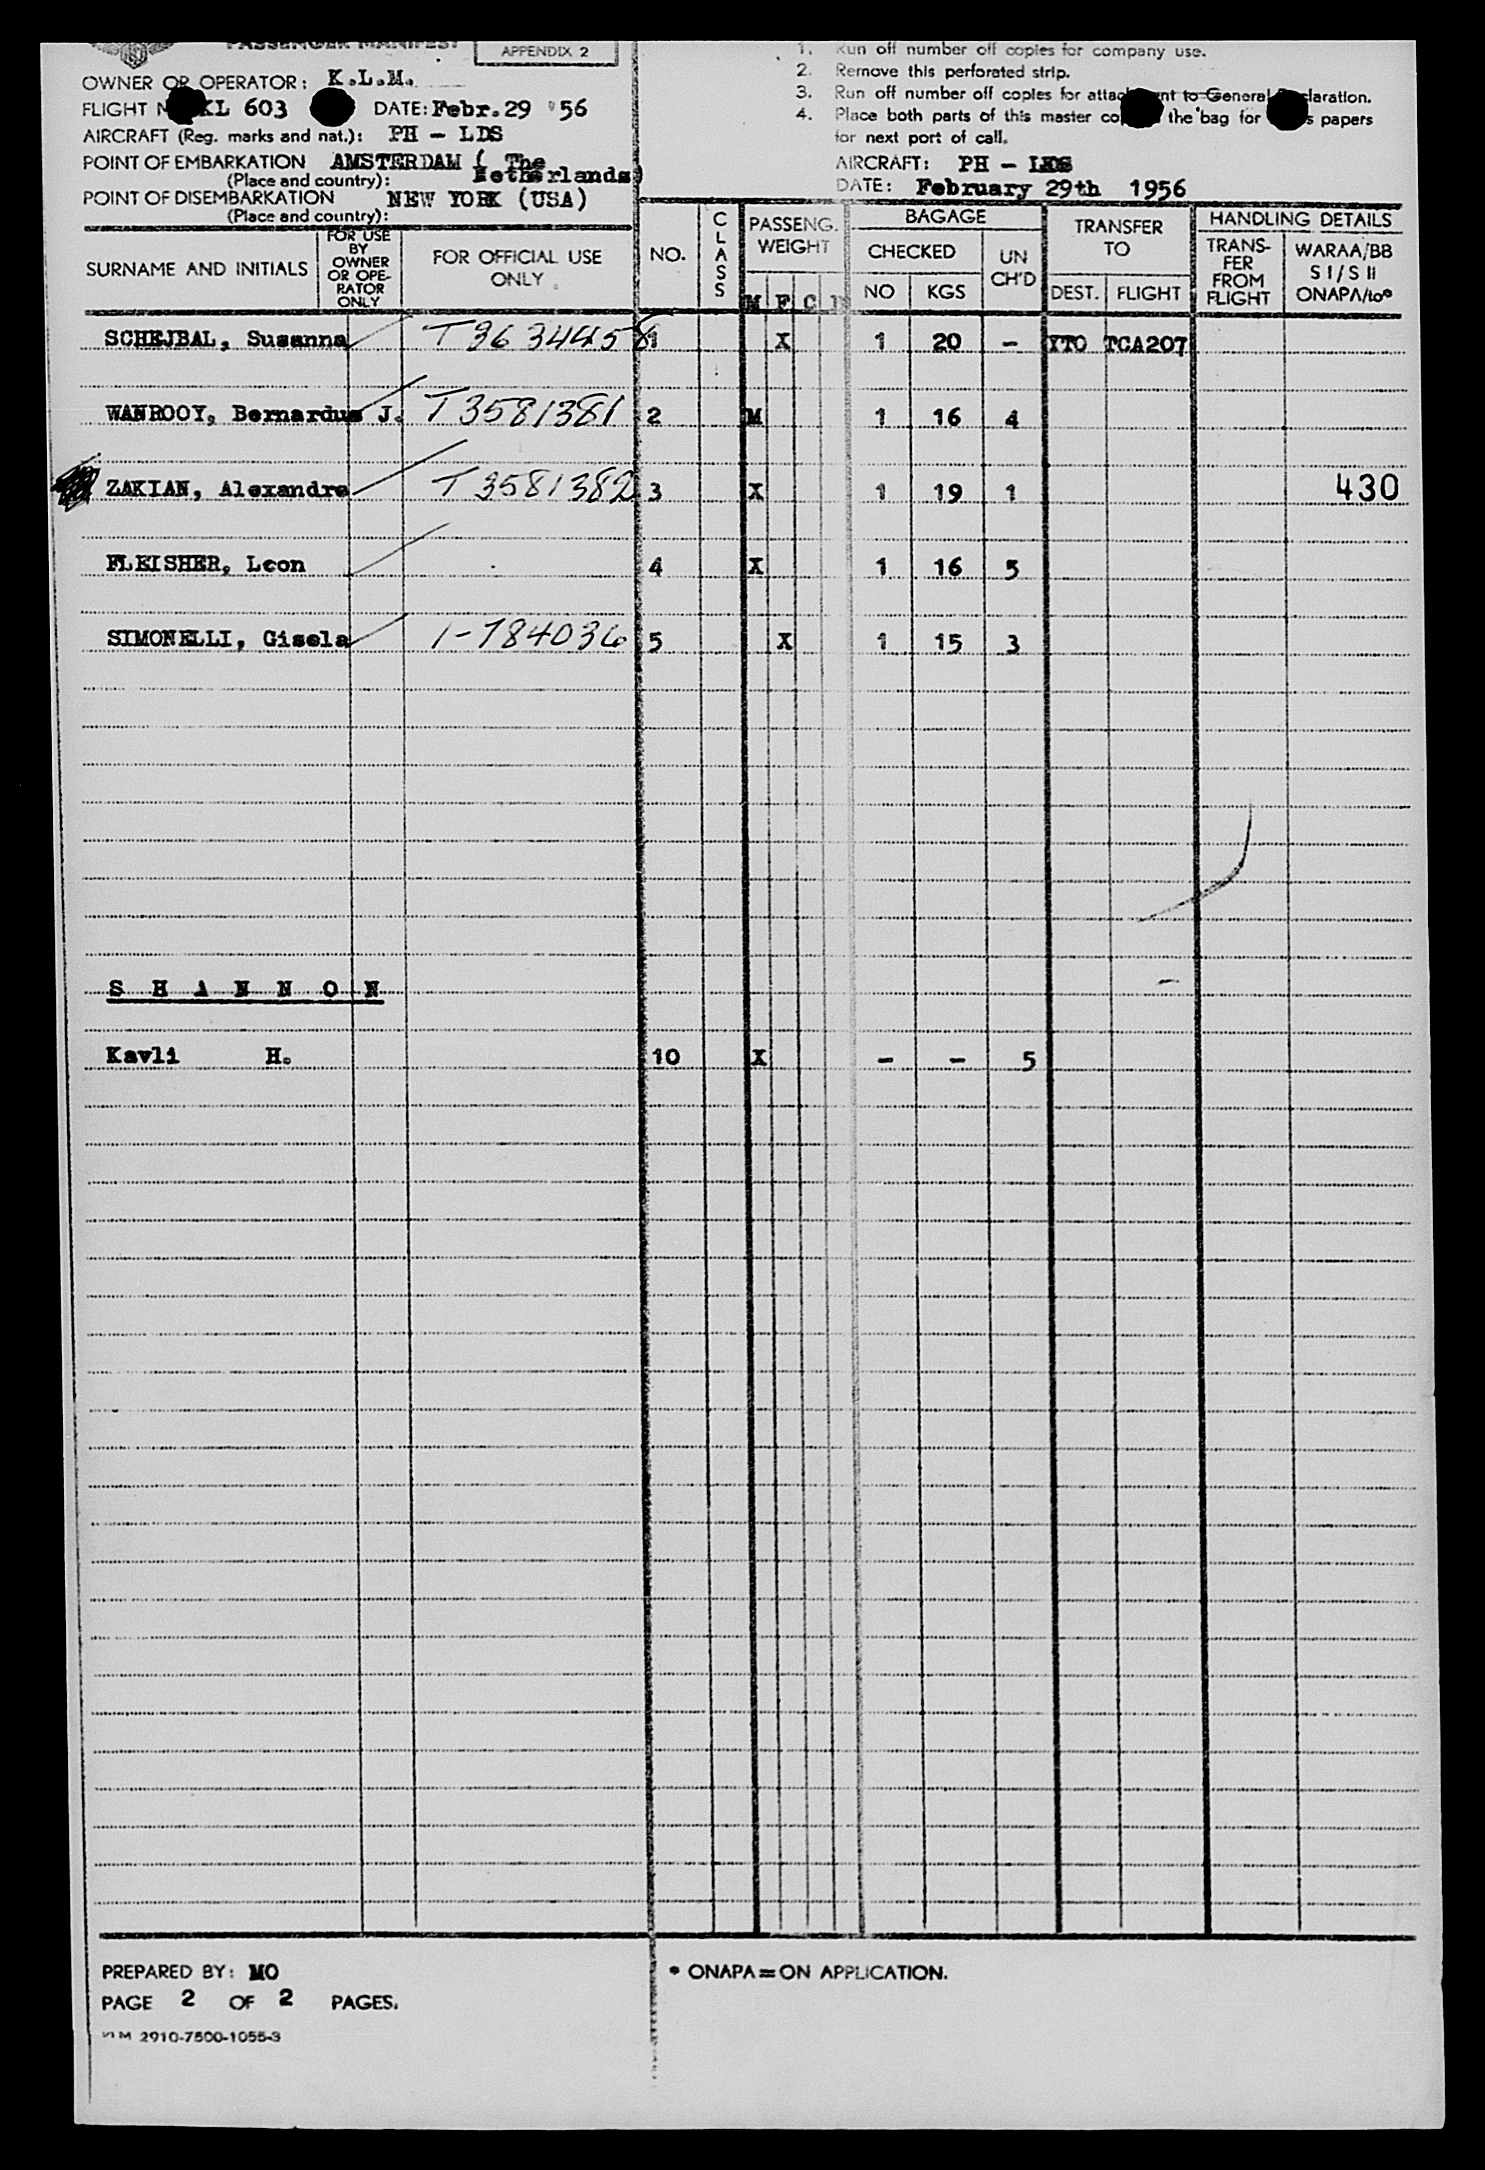 PASSENGER MANIFEST
APPENDIX 2
OWNER OR OPERATOR: K.L.M.
FLIGHT KL 603 DATE: Febr. 29 '56
AIRCRAFT (Reg. marks and nat.): PH - LDS
POINT OF EMBARKATION AMSTERDAM ( The Netherlands)
(Place and country):
POINT OF DISEMBARKATION NEW YORK (USA)
(Place and country):
1. Run off number off copies for company use.
2. Remove this perforated strip.
3. Run off number off copies for attachment to General Declaration.
4. Place both parts of this master the bag for papers
for next port of call.
AIRCRAFT: PH - LDS
DATE: February 29th 1956
SURNAME AND INITIALS
FOR USE BY OWNER OR OPE-RATOR ONLY
FOR OFFICIAL USE ONLY
NO. CLASS PASSENG. WEIGHT M F C
BAGAGE CHECKED NO KGS UN CH'D
TRANSFER TO DEST. FLIGHT
HANDLING DETAILS TRANS-FER FROM FLIGHT WARAA/BB S I/S II ONAPA/to*
SCHEJBAL, Susanna T3634458 1 X 1 20 - YTO TCA207
WANROOY, Bernardus J. T3581381 2 M 1 16 4
ZAKIAN, Alexandre T3581382 3 X 1 19 1 430
FLEISHER, Leon 4 X 1 16 5
SIMONELLI, Gisela 1-784036 5 X 1 15 3
S H A N N O N
Kavli H. 10 X - - 5
PREPARED BY: MO
PAGE 2 OF 2 PAGES.
* ONAPA=ON APPLICATION.
2910-7500-1055-3